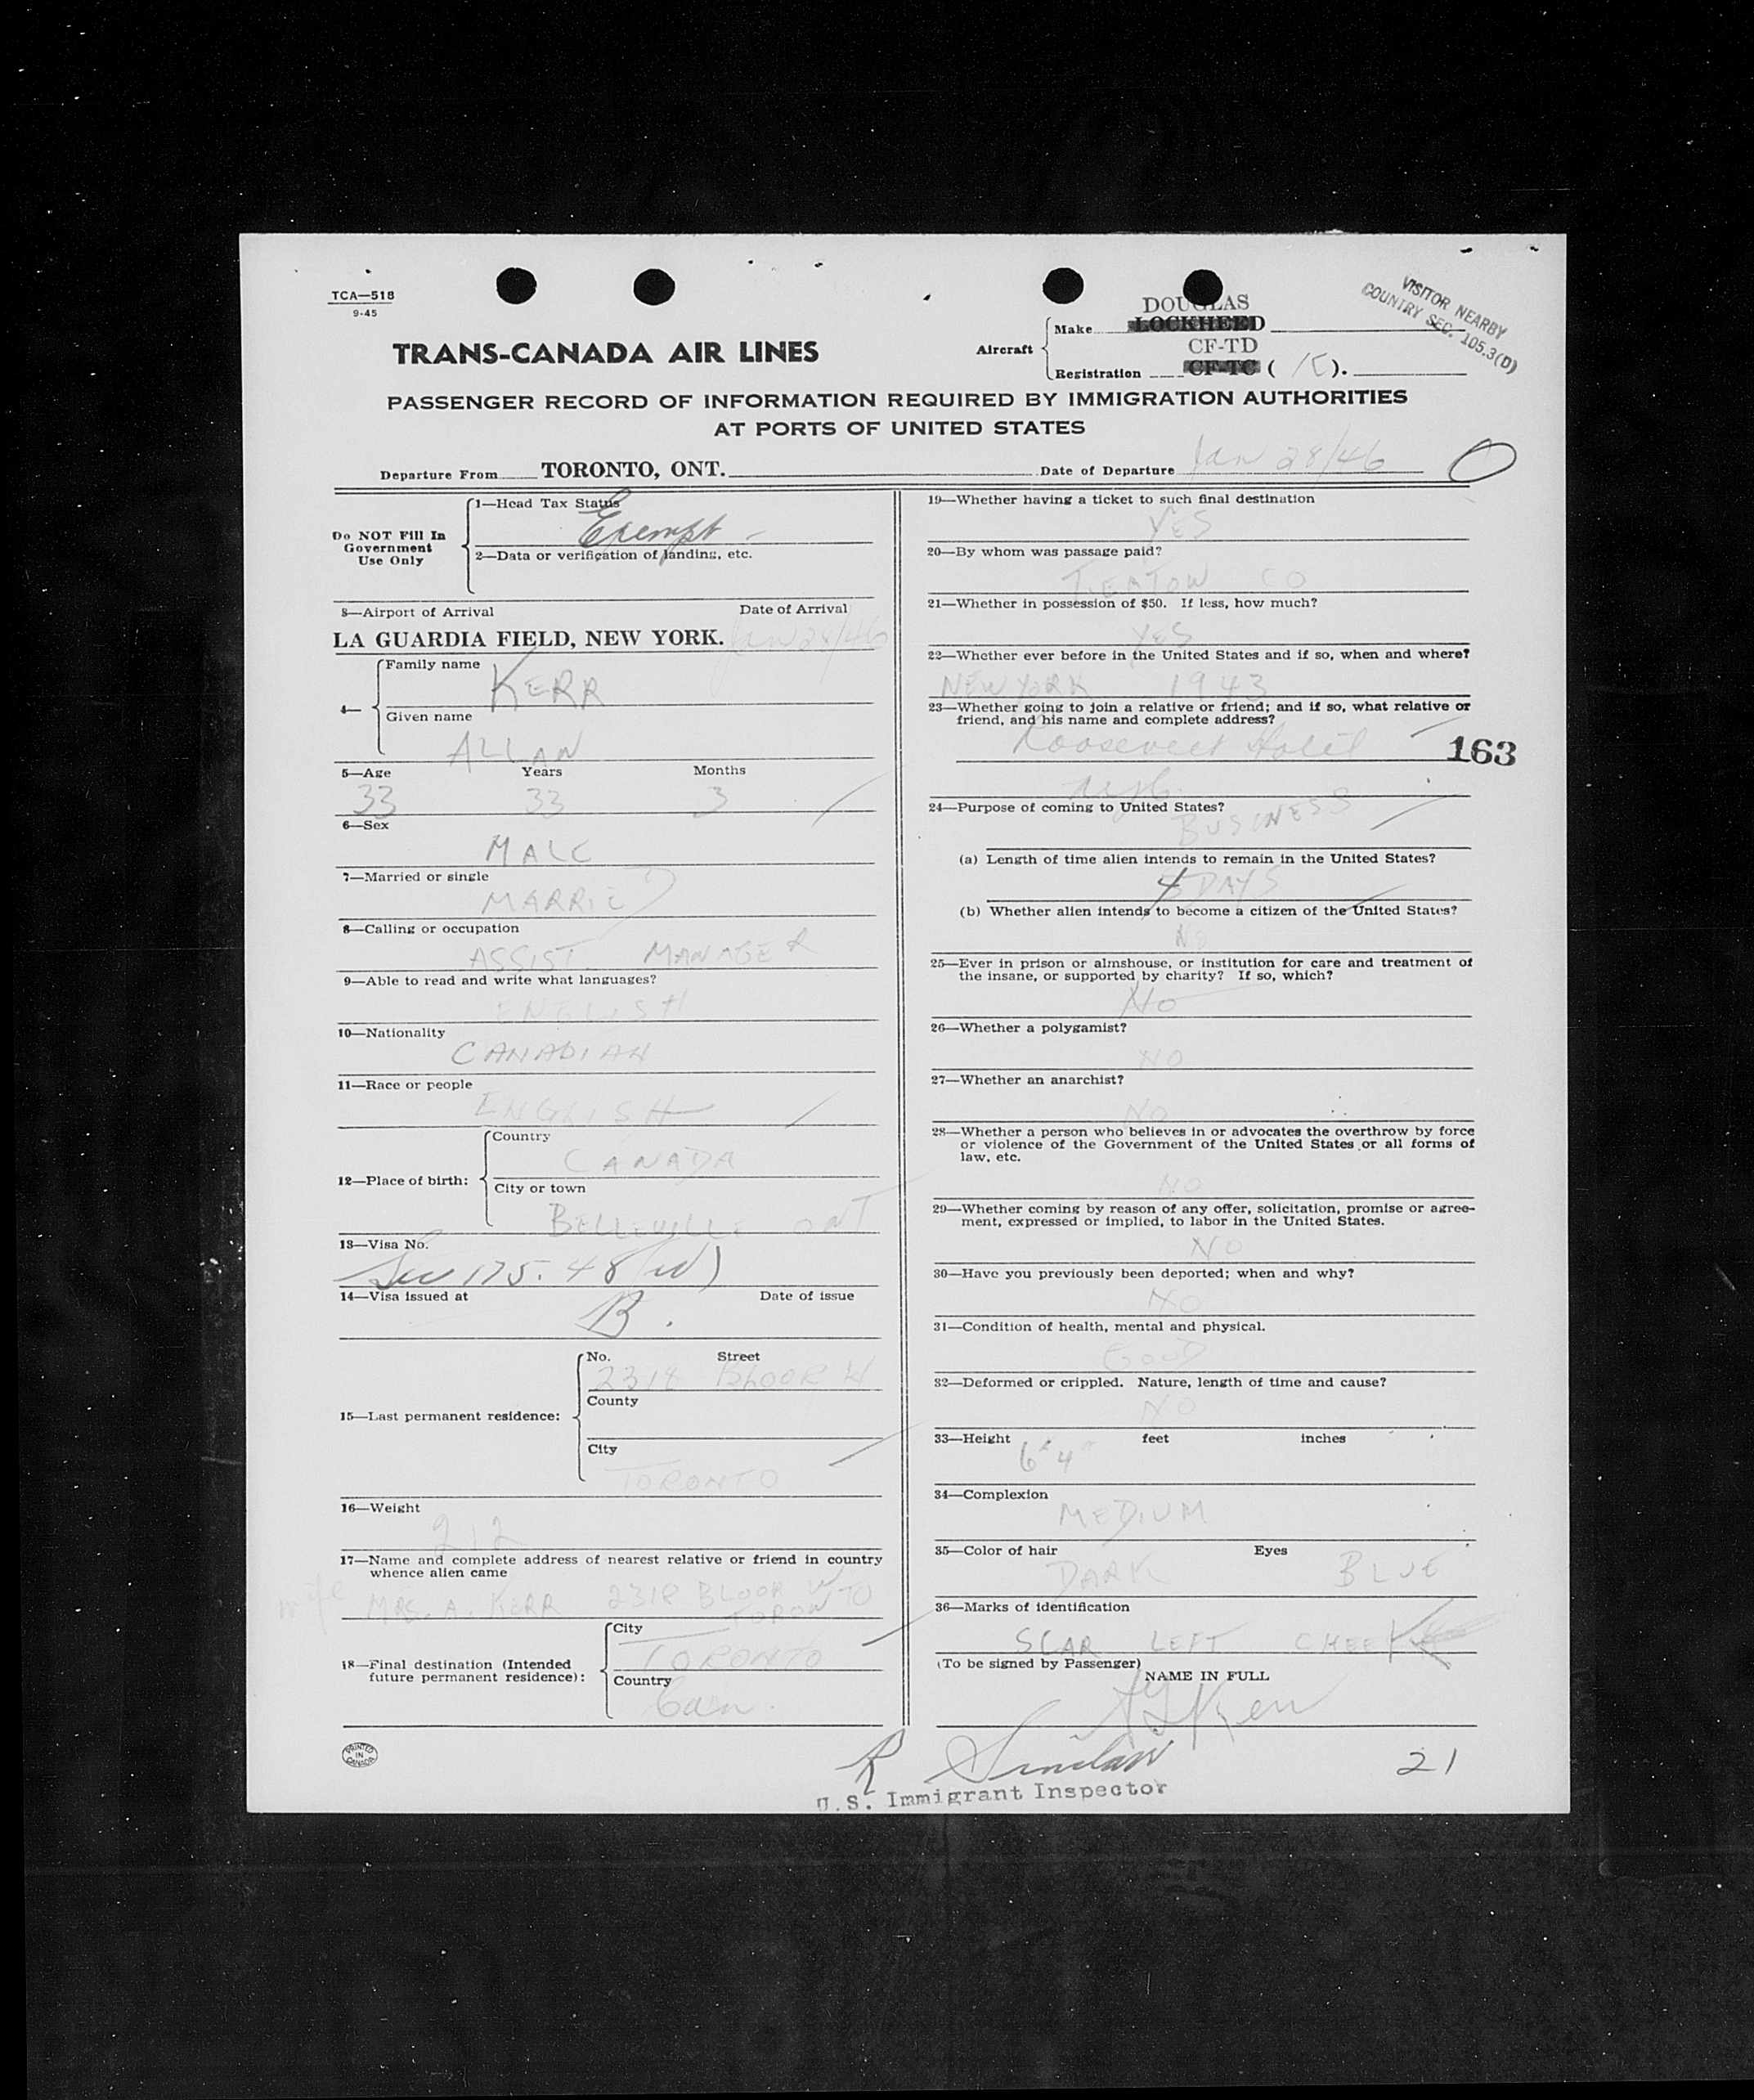 TCA—518
9-45
VISITOR NEARBY
COUNTRY SEC. 105.3(D)
DOUGLAS
Aircraft Make LOCKHEED
CF-TD
Registration CF-TC ( ).
TRANS-CANADA AIR LINES
PASSENGER RECORD OF INFORMATION REQUIRED BY IMMIGRATION AUTHORITIES
AT PORTS OF UNITED STATES
Departure From TORONTO, ONT. Date of Departure Jan 28/46
Do NOT Fill In
Government
Use Only
1—Head Tax Status
Exempt
2—Data or verification of landing, etc.
3—Airport of Arrival Date of Arrival
LA GUARDIA FIELD, NEW YORK. Jan 28/46
4—
Family name
KERR
Given name
ALLAN
5—Age Years Months
33 33 3
6—Sex
MALE
7—Married or single
MARRIED
8—Calling or occupation
ASSIST MANAGER
9—Able to read and write what languages?
ENGLISH
10—Nationality
CANADIAN
11—Race or people
ENGLISH
12—Place of birth:
Country
CANADA
City or town
BELLEVILLE ONT
13—Visa No.
Sec 175.48
14—Visa issued at Date of issue
B.
15—Last permanent residence:
No. Street
BLOOR W
County
City
TORONTO
16—Weight
212
17—Name and complete address of nearest relative or friend in country
whence alien came
wife MRS. A. KERR BLOOR W
TORONTO
18—Final destination (Intended
future permanent residence):
City
TORONTO
Country
Can.
PRINTED
IN
CANADA
19—Whether having a ticket to such final destination
YES
20—By whom was passage paid?
T. EATON CO
21—Whether in possession of $50. If less, how much?
YES
22—Whether ever before in the United States and if so, when and where?
NEW YORK 1943
23—Whether going to join a relative or friend; and if so, what relative or
friend, and his name and complete address?
Roosevelt Hotel
163
24—Purpose of coming to United States?
BUSINESS
(a) Length of time alien intends to remain in the United States?
4 DAYS
(b) Whether alien intends to become a citizen of the United States?
NO
25—Ever in prison or almshouse, or institution for care and treatment of
the insane, or supported by charity? If so, which?
NO
26—Whether a polygamist?
NO
27—Whether an anarchist?
NO
28—Whether a person who believes in or advocates the overthrow by force
or violence of the Government of the United States or all forms of
law, etc.
NO
29—Whether coming by reason of any offer, solicitation, promise or agree-
ment, expressed or implied, to labor in the United States.
NO
30—Have you previously been deported; when and why?
NO
31—Condition of health, mental and physical.
GOOD
32—Deformed or crippled. Nature, length of time and cause?
NO
33—Height feet inches
6' 4"
34—Complexion
MEDIUM
35—Color of hair Eyes
DARK BLUE
36—Marks of identification
SCAR LEFT CHEEK
(To be signed by Passenger)
NAME IN FULL
Kerr
R Sinclair
21
U.S. Immigrant Inspector